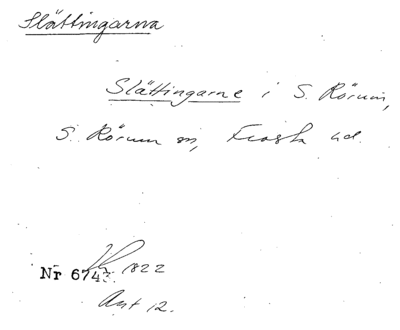 Slättingarna
Slättingarne i S. Rörum,
S. Rörum sn, Frosta hd.
1822
Nr 6743.
Avt 12.